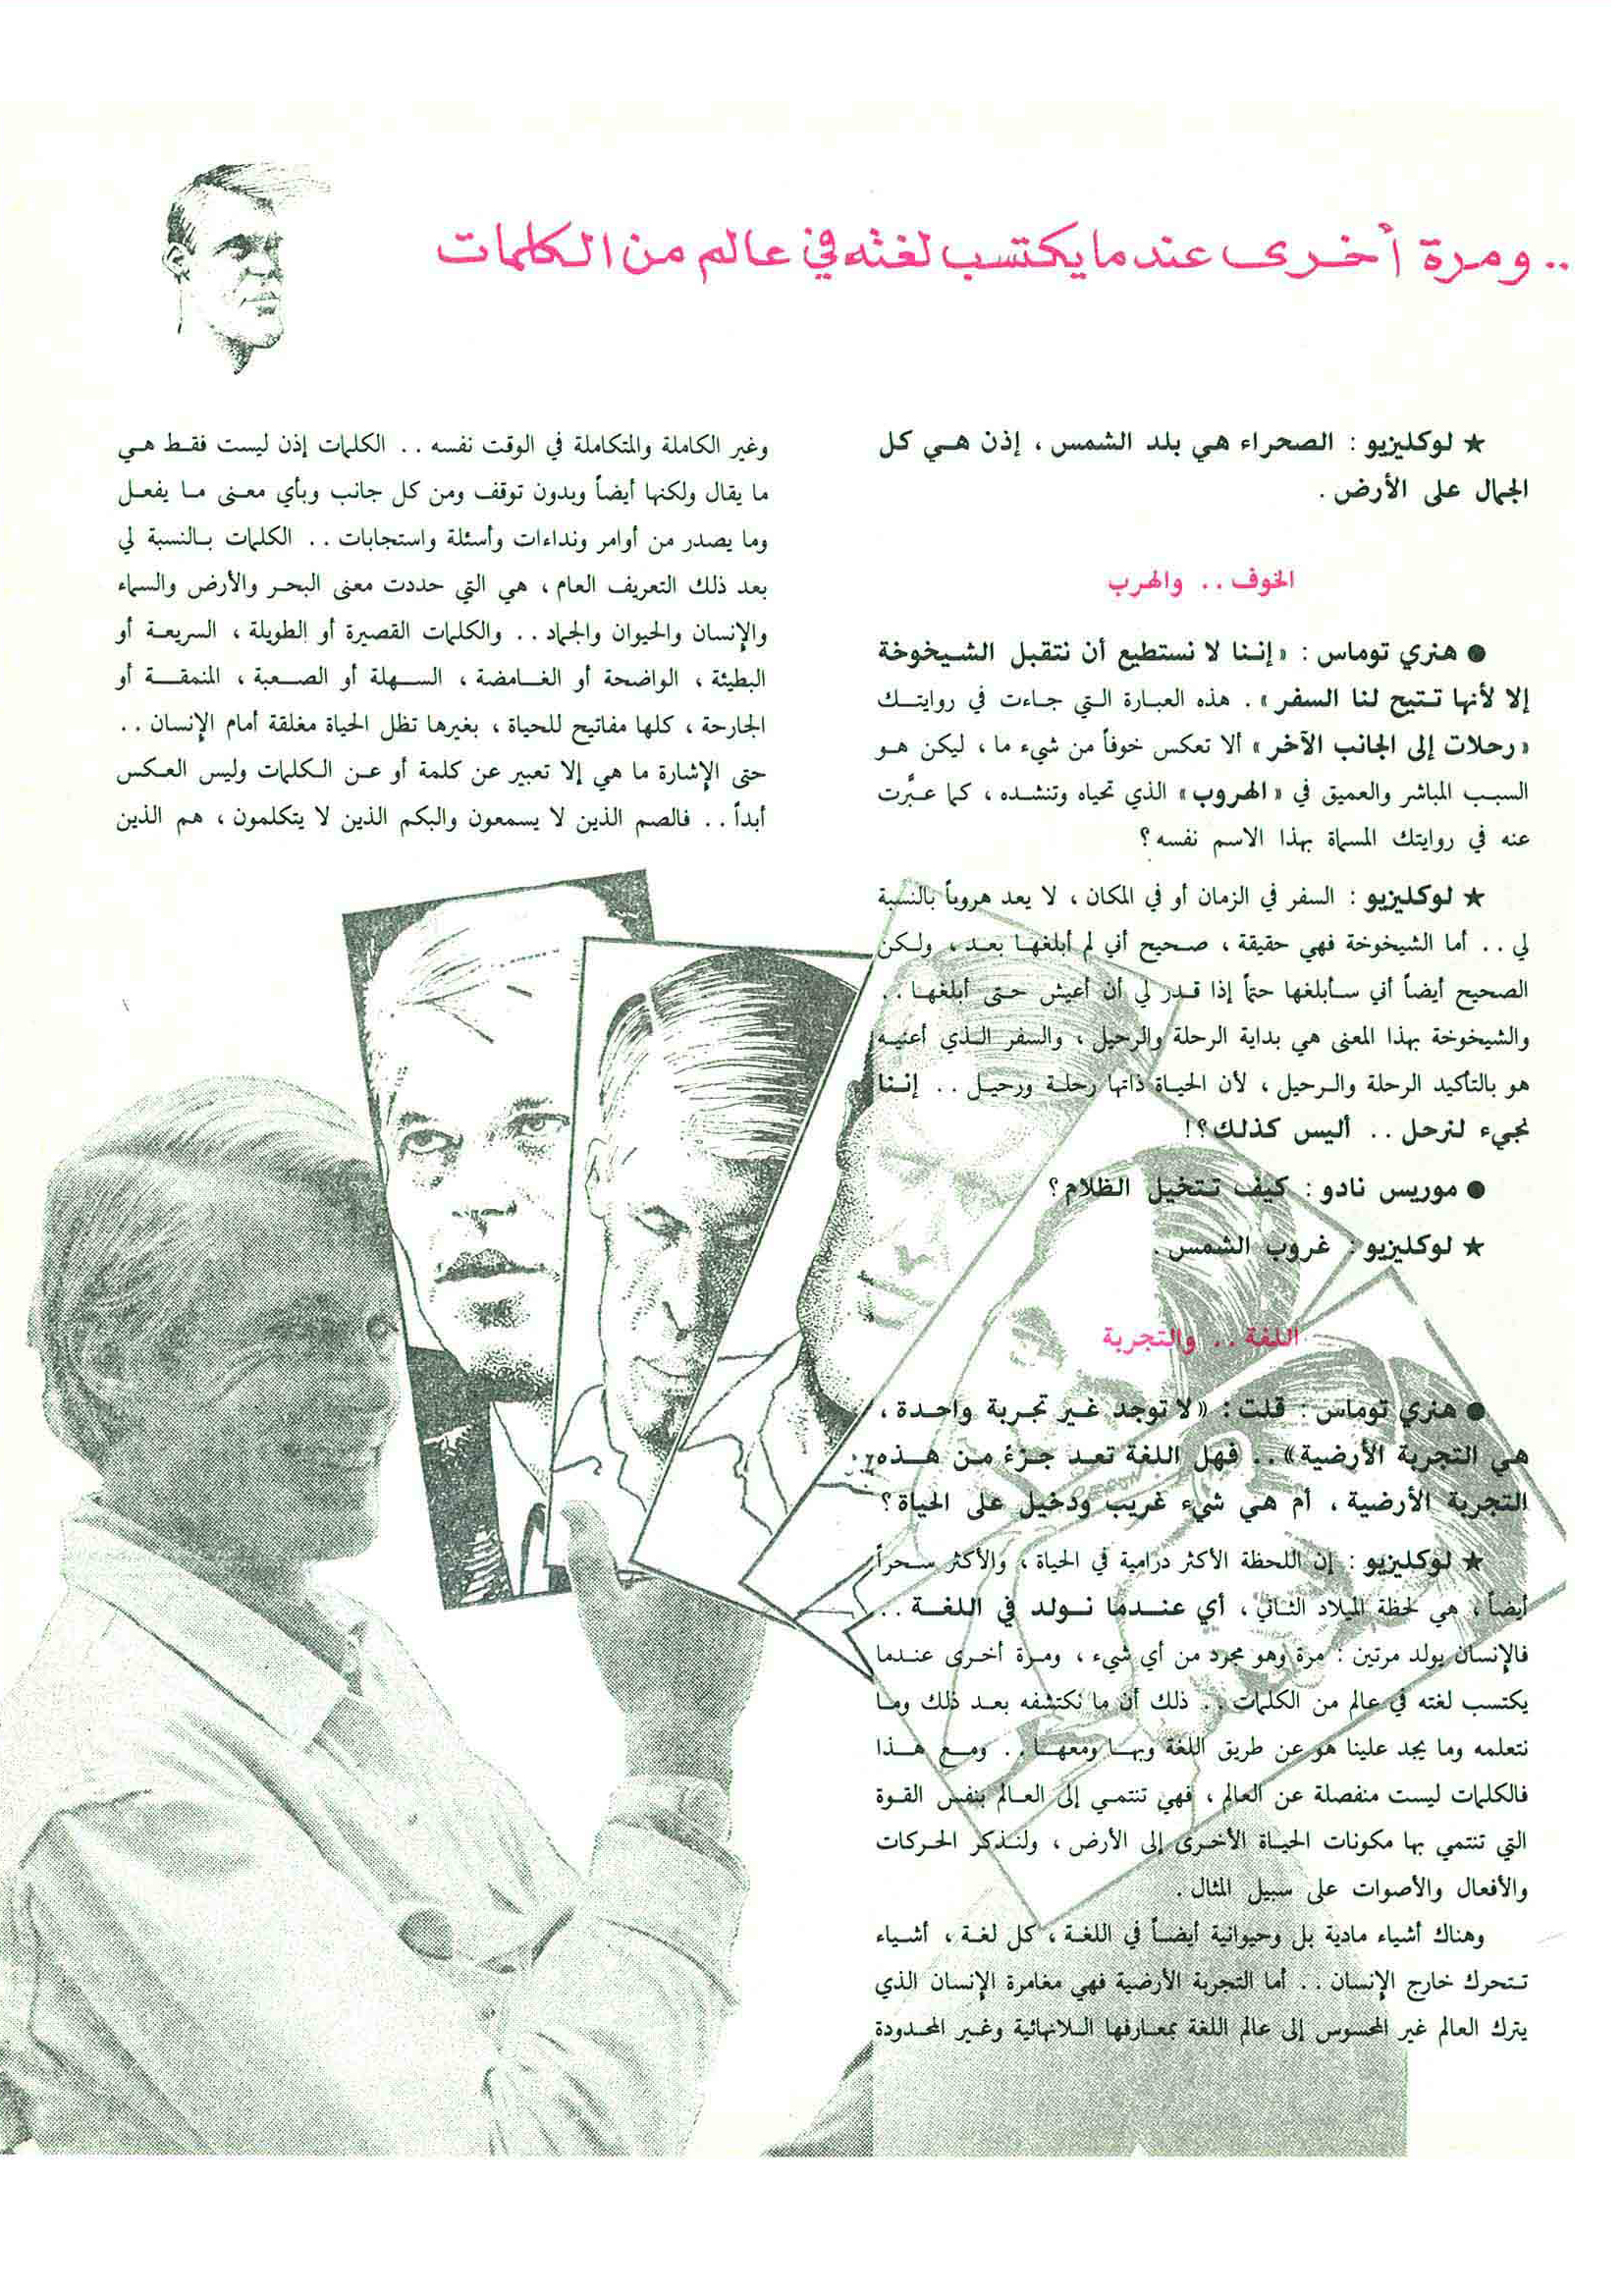 .. ومرة أخرى عندما يكتسب لغته في عالم من الكلمات
★ لوكليزيو : الصحراء هي بلد الشمس ، إذن هي كل
الجمال على الأرض .
الخوف .. والهرب
● هنري توماس : « إننا لا نستطيع أن نتقبل الشيخوخة
إلا لأنها تتيح لنا السفر » . هذه العبارة التي جاءت في روايتك
« رحلات إلى الجانب الآخر » ألا تعكس خوفاً من شيء ما ، ليكن هو
السبب المباشر والعميق في « الهروب » الذي تحياه وتنشده ، كما عبَّرت
عنه في روايتك المسماة بهذا الاسم نفسه ؟
★ لوكليزيو : السفر في الزمان أو في المكان ، لا يعد هروباً بالنسبة
لي .. أما الشيخوخة فهي حقيقة ، صحيح أني لم أبلغها بعد ، ولكن
الصحيح أيضاً أني سأبلغها حتماً إذا قدر لي أن أعيش حتى أبلغها ..
والشيخوخة بهذا المعنى هي بداية الرحلة والرحيل ، والسفر الذي أعنيه
هو بالتأكيد الرحلة والرحيل ، لأن الحياة ذاتها رحلة ورحيل .. إننا
نجيء لنرحل .. أليس كذلك ؟!
● موريس نادو : كيف تتخيل الظلام ؟
★ لوكليزيو : غروب الشمس .
اللغة .. والتجربة
● هنري توماس : قلت : « لا توجد غير تجربة واحدة ،
هي التجربة الأرضية » .. فهل اللغة تعد جزءً من هذه
التجربة الأرضية ، أم هي شيء غريب ودخيل على الحياة ؟
★ لوكليزيو : إن اللحظة الأكثر درامية في الحياة ، والأكثر سحراً
أيضاً ، هي لحظة الميلاد الثاني ، أي عندما نولد في اللغة ..
فالإنسان يولد مرتين : مرة وهو مجرد من أي شيء ، ومرة أخرى عندما
يكتسب لغته في عالم من الكلمات .. ذلك أن ما نكتشفه بعد ذلك وما
نتعلمه وما يجد علينا هو عن طريق اللغة وبها ومعها .. ومع هذا
فالكلمات ليست منفصلة عن العالم ، فهي تنتمي إلى العالم بنفس القوة
التي تنتمي بها مكونات الحياة الأخرى إلى الأرض ، ولنذكر الحركات
والأفعال والأصوات على سبيل المثال .
وهناك أشياء مادية بل وحيوانية أيضاً في اللغة ، كل لغة ، أشياء
تتحرك خارج الإنسان .. أما التجربة الأرضية فهي مغامرة الإنسان الذي
يترك العالم غير المحسوس إلى عالم اللغة بمعارفها اللانهائية وغير المحدودة
وغير الكاملة والمتكاملة في الوقت نفسه .. الكلمات إذن ليست فقط هي
ما يقال ولكنها أيضاً وبدون توقف ومن كل جانب وبأي معنى ما يفعل
وما يصدر من أوامر ونداءات وأسئلة واستجابات .. الكلمات بالنسبة لي
بعد ذلك التعريف العام ، هي التي حددت معنى البحر والأرض والسماء
والإنسان والحيوان والجماد .. والكلمات القصيرة أو الطويلة ، السريعة أو
البطيئة ، الواضحة أو الغامضة ، السهلة أو الصعبة ، المنمقة أو
الجارحة ، كلها مفاتيح للحياة ، بغيرها تظل الحياة مغلقة أمام الإنسان ..
حتى الإشارة ما هي إلا تعبير عن كلمة أو عن الكلمات وليس العكس
أبداً .. فالصم الذين لا يسمعون والبكم الذين لا يتكلمون ، هم الذين